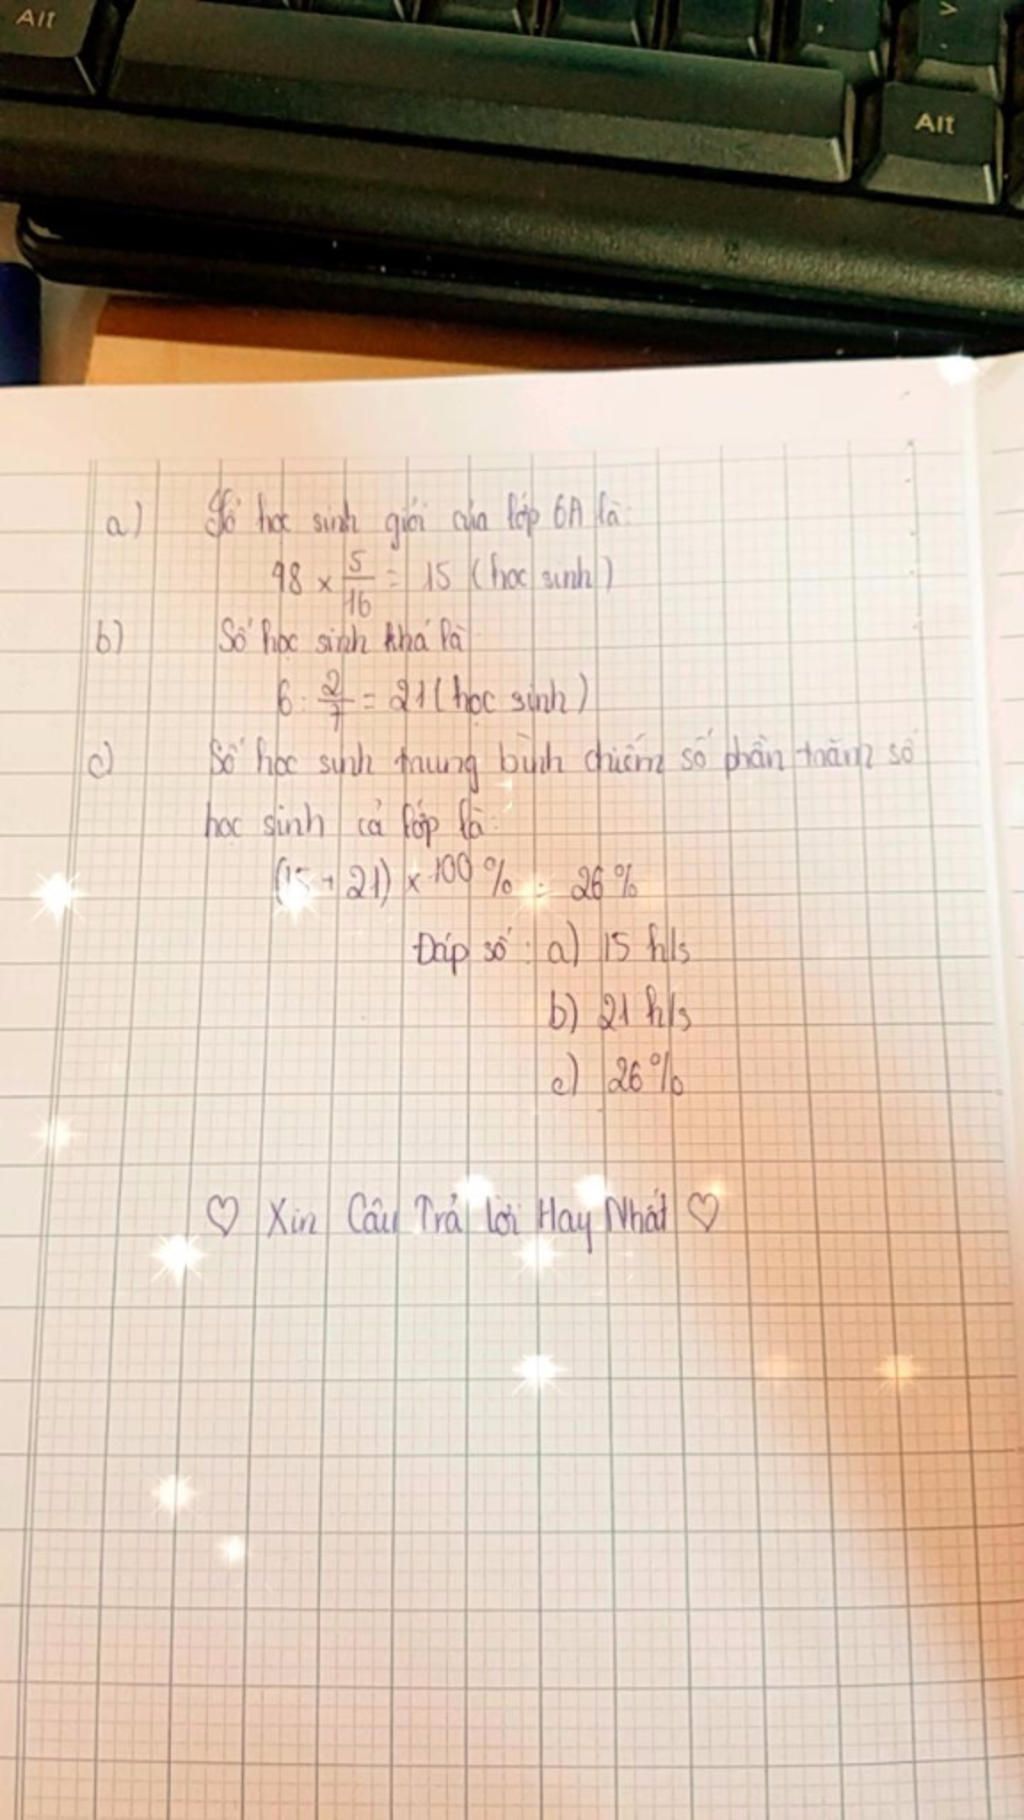 Alt
Alt
a) Số học sinh giỏi của lớp 6A là:
48 × 5/16 = 15 (học sinh)
b) Số học sinh khá là
6 : 2/7 = 21 (học sinh)
c) Số học sinh trung bình chiếm số phần trăm số
học sinh cả lớp là:
(15 + 21) × 100 % = 26 %
Đáp số : a) 15 h/s
b) 21 h/s
c) 26 %
♡ Xin Câu Trả lời Hay Nhất ♡